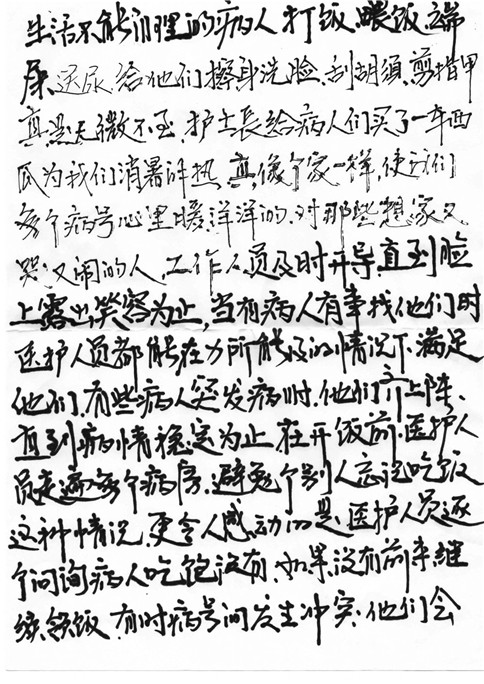 生活不能自理的病人打饭、喂饭、端
尿、送尿、给他们擦身洗脸、刮胡须、剪指甲
真是无微不至，护士長给病人们买了一车西
瓜为我们消暑降热，真像个家一样，使我们
每个病号心里暖洋洋的，对那些想家又
哭又闹的人，工作人员及时开导，直到脸
上露出笑容为止，当有病人有事找他们时
医护人员都能在力所能及的情况下，满足
他们，有些病人突发病时，他们齐上阵、
直到病情稳定为止，在开饭前，医护人
员走遍每个病房，避免个别人忘记吃饭
这种情况，更令人感动的是，医护人员逐
个问询病人吃饱没有，如果没有前来继
续领饭，有时病号间发生冲突，他们会